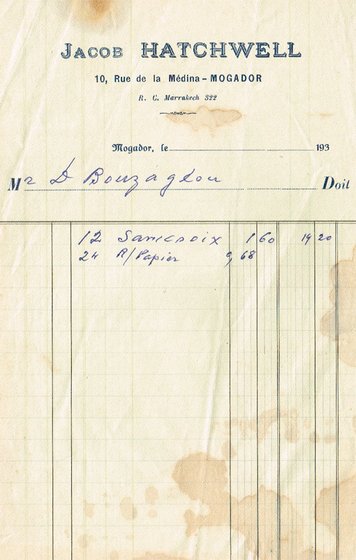 JACOB HATCHWELL
10, Rue de la Médina - MOGADOR
R. C. Marrakech 322
Mogador, le 193
Mr D Bouzaglou Doit
12 Sanscroix 1 60 19 20
24 R/Papier 0, 68